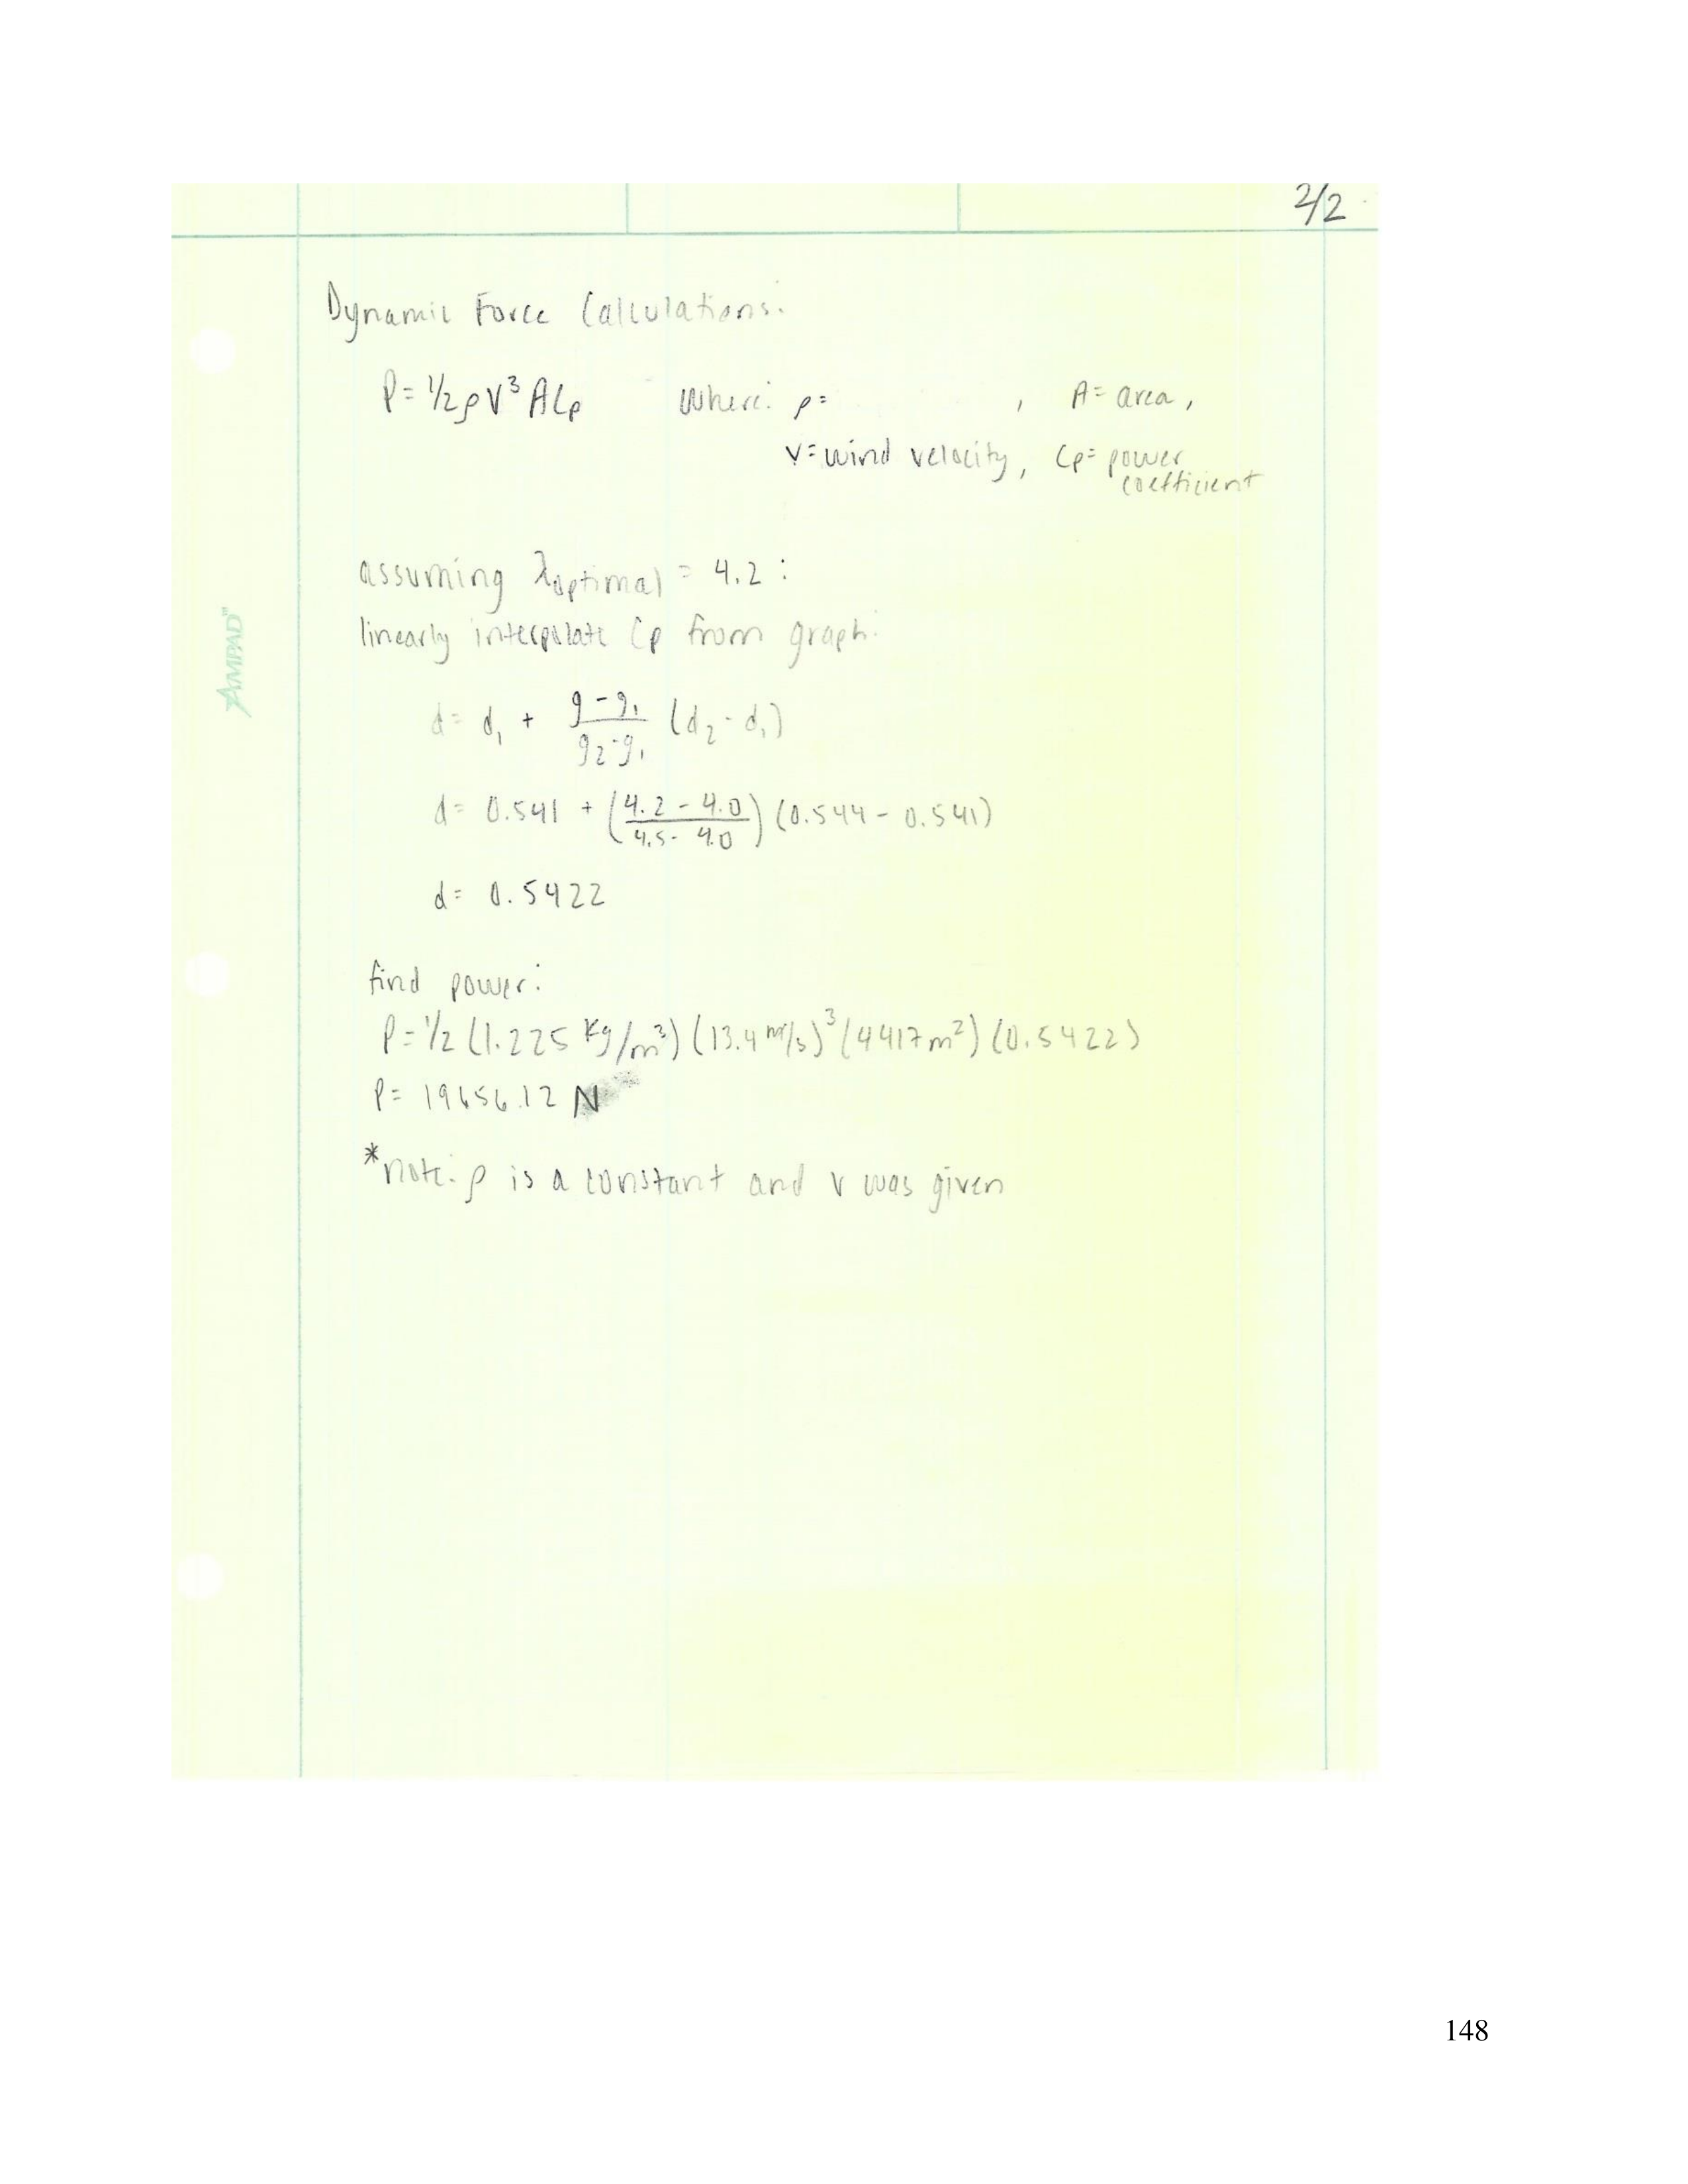 2/2
Dynamic Force Calculations:
P = 1/2 ρ V³ A Cp   Where: ρ =   , A = area,
V = wind velocity, Cp = power
coefficient
AMPAD™
assuming λoptimal = 4.2 :
linearly interpolate Cp from graph:
d = d₁ + (g - g₁)/(g₂ - g₁) (d₂ - d₁)
d = 0.541 + ((4.2 - 4.0)/(4.5 - 4.0)) (0.544 - 0.541)
d = 0.5422
find power:
P = 1/2 (1.225 Kg/m³) (13.4 m/s)³ (4417 m²) (0.5422)
P = 19656.12 N
*note: ρ is a constant and v was given
148